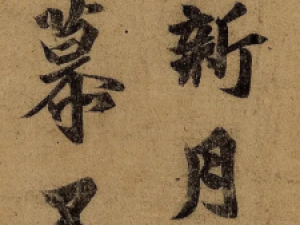 新月
幕